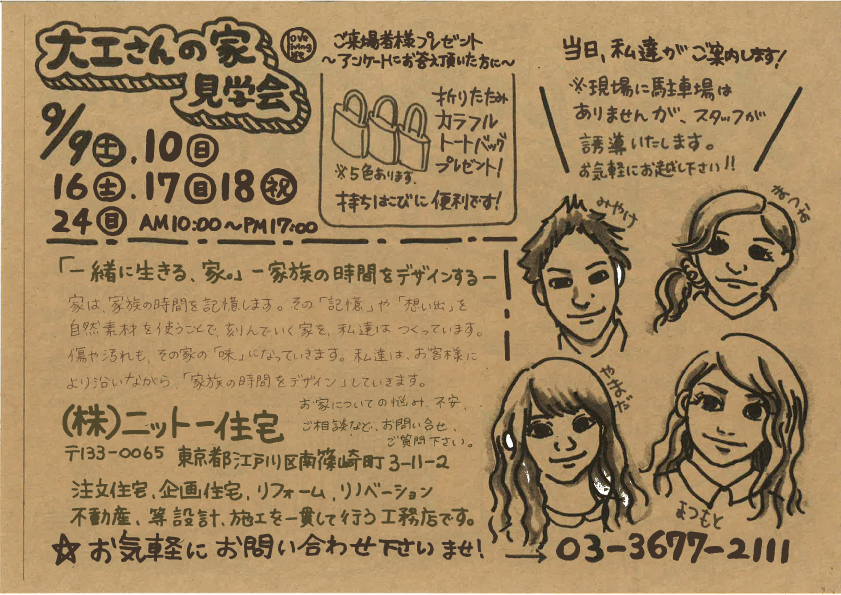 大工さんの家
見学会
love
living
life
9/9(土).10(日)
16(土).17(日)18(祝)
24(日) AM10:00〜PM17:00
ご来場者様プレゼント
〜アンケートにお答え頂いた方に〜
折りたたみ
カラフル
トートバッグ
プレゼント!
※5色あります.
持ちはこびに便利です!
当日、私達がご案内します!
※現場に駐車場は
ありませんが、スタッフが
誘導いたします。
お気軽にお越し下さい!!
みやけ
やまだ
まつもと
「一緒に生きる、家。」ー家族の時間をデザインするー
家は、家族の時間を記憶します。その「記憶」や「想い出」を
自然素材を使うことで、刻んでいく家を、私達はつくっています。
傷や汚れも、その家の「味」になっていきます。私達は、お客様に
より沿いながら、「家族の時間をデザイン」していきます。
お家についての悩み、不安、
ご相談など、お問い合せ、
ご質問下さい。
(株)ニットー住宅
〒133-0065 東京都江戸川区南篠崎町3-11-2
注文住宅、企画住宅、リフォーム、リノベーション
不動産、等設計、施工を一貫して行う工務店です。
☆お気軽にお問い合わせ下さいませ!→03-3677-2111